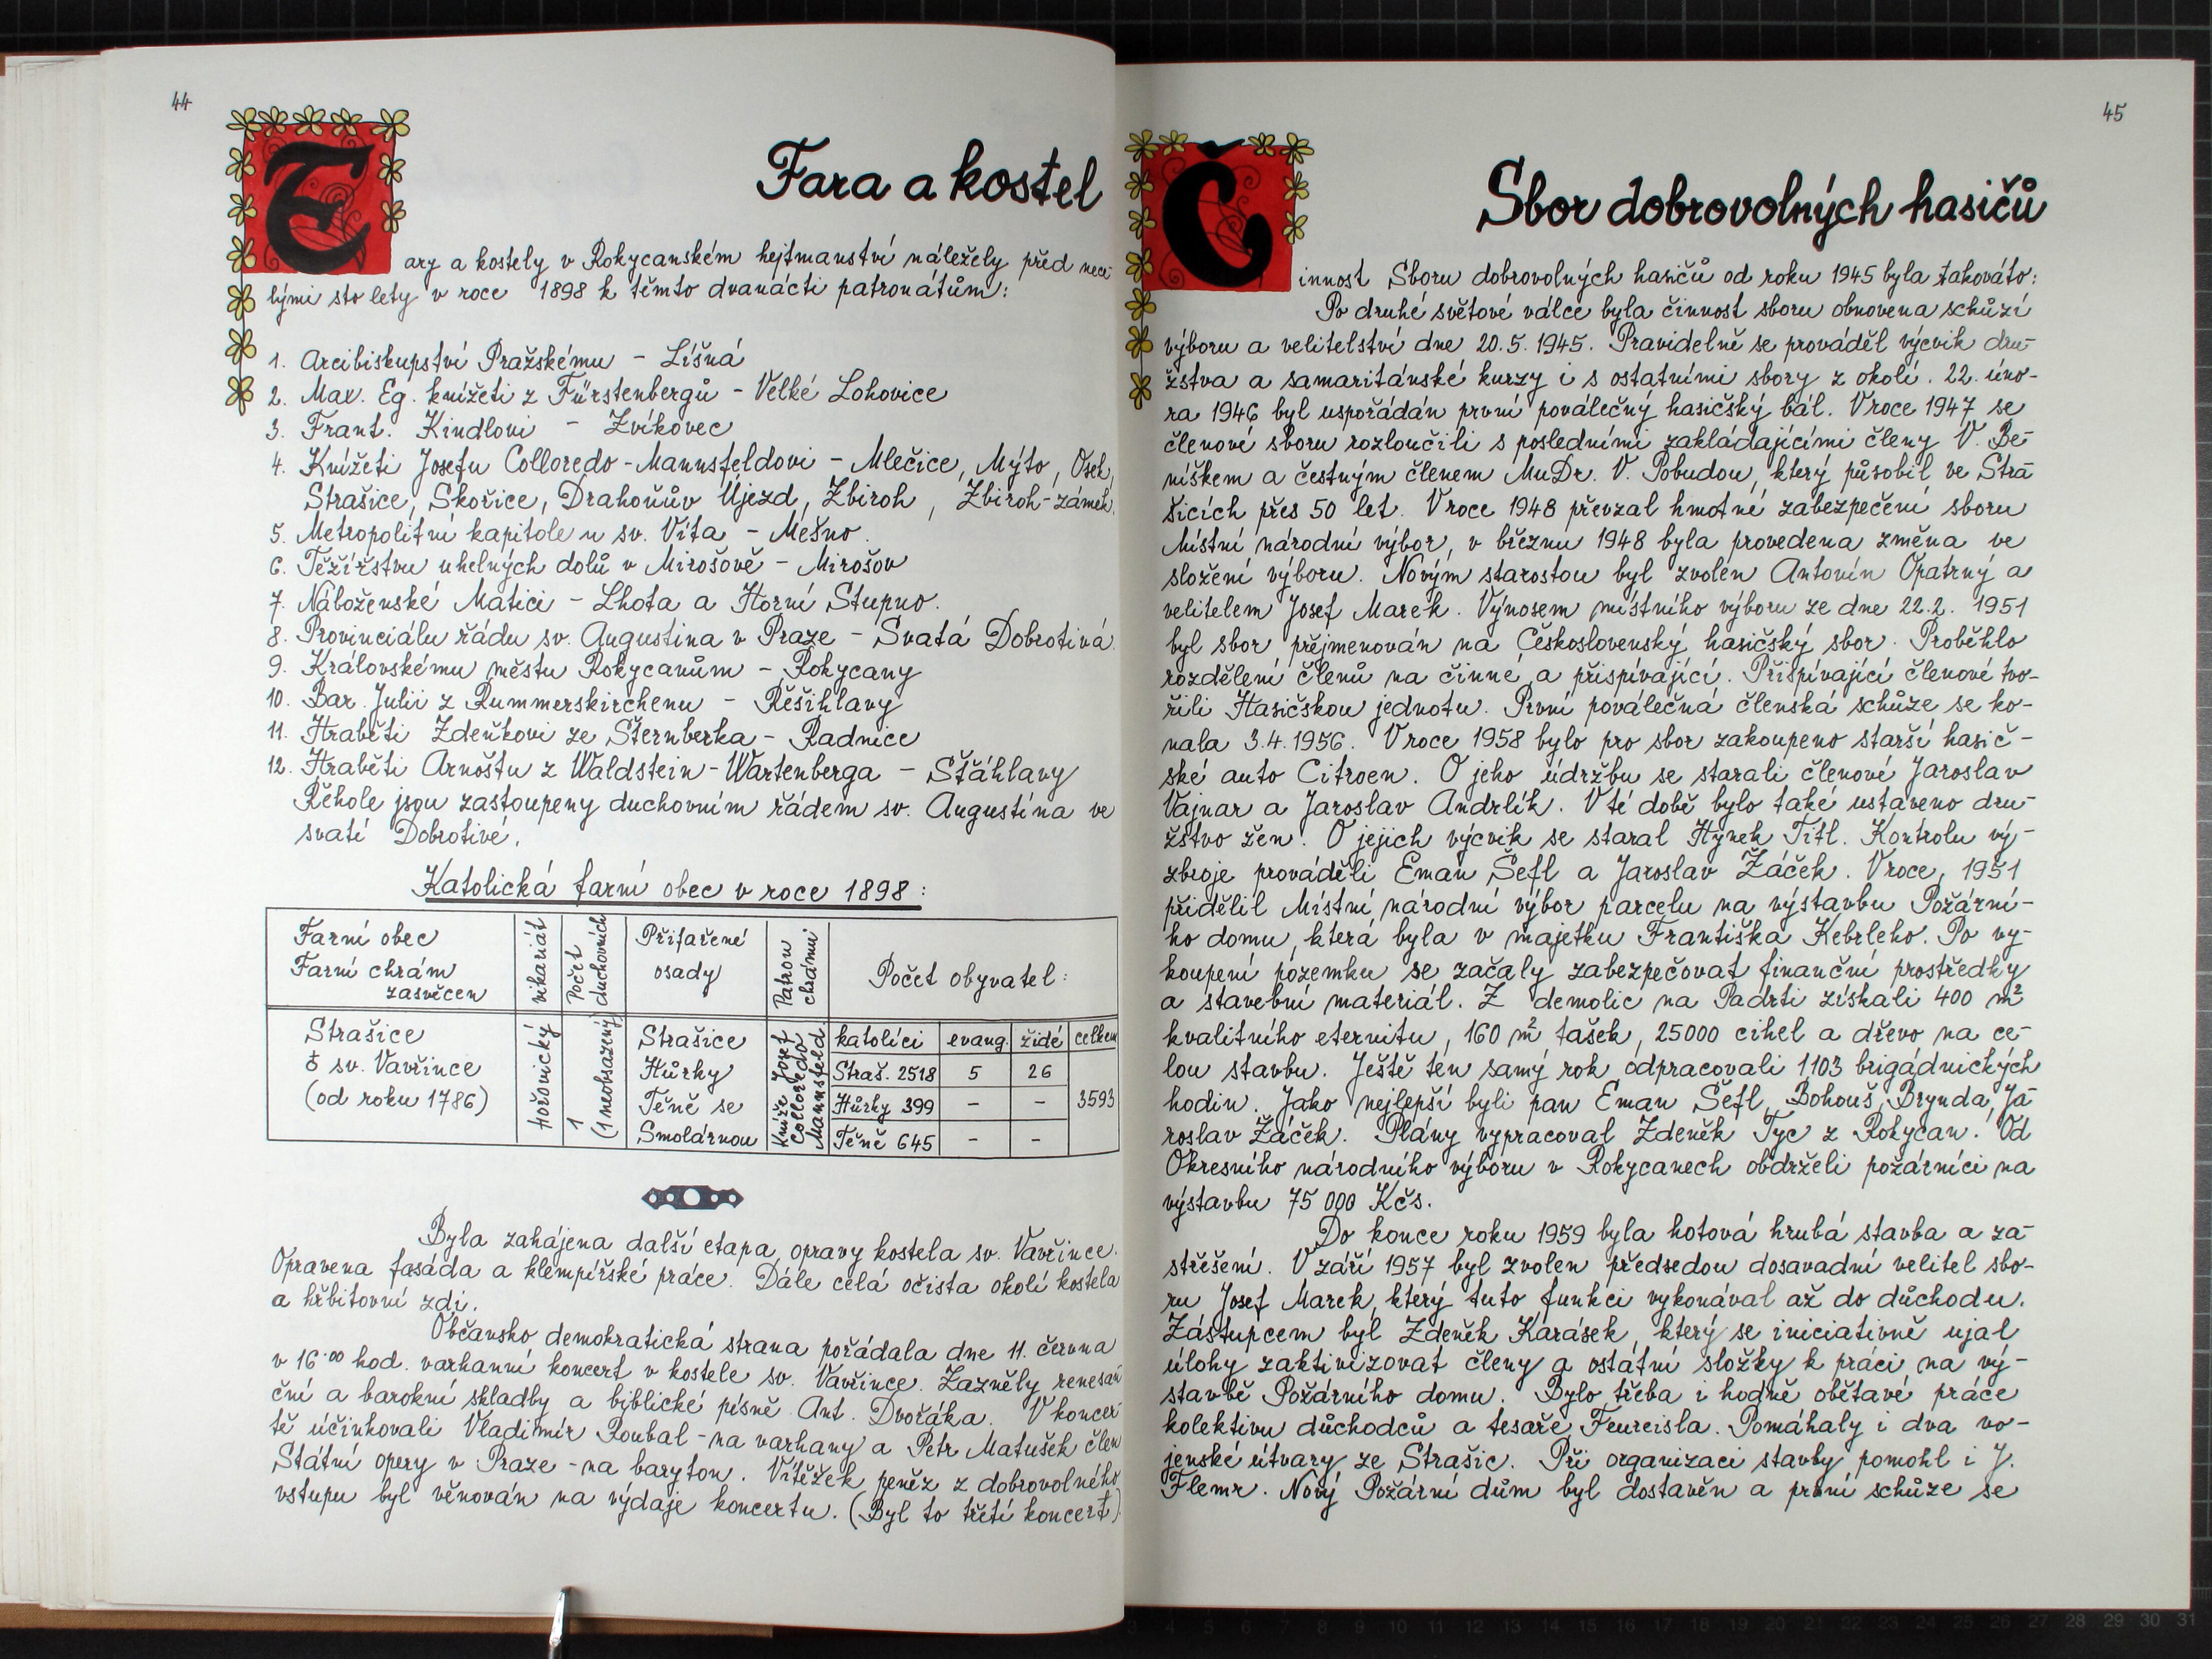 44
Fara a kostel
Fary a kostely v Rokycanském hejtmanství náležely před nece
lými sto lety v roce 1898 k těmto dvanácti patronátům:
1. Arcibiskupství Pražskému - Líšná
2. Max. Eg. knížeti z Fürstenbergů - Velké Lohovice
3. Frant. Kindlovi - Zvíkovec
4. Knížeti Josefu Colloredo-Mannsfeldovi - Mlečice, Mýto, Osek,
Strašice, Skořice, Drahoňův Újezd, Zbiroh, Zbiroh-zámek.
5. Metropolitní kapitole u sv. Víta - Mešno.
6. Těžířstvu uhelných dolů v Mirošově - Mirošov
7. Náboženské Matici - Lhota a Horní Stupno.
8. Provinciálu řádu sv. Augustina v Praze - Svatá Dobrotivá.
9. Královskému městu Rokycanům - Rokycany
10. Bar. Julii z Rummerskirchenu - Řešihlavy
11. Hraběti Zdeňkovi ze Šternberka - Radnice
12. Hraběti Arnoštu z Waldstein-Wartenberga - Šťáhlavy
Řehole jsou zastoupeny duchovním řádem sv. Augustína ve
svaté Dobrotivé.
Katolická farní obec v roce 1898:
Farní obec
Farní chrám
zasvěcen
vikariát
Počet
duchovních
Přifařené
osady
Patron
chrámu
Počet obyvatel:
Strašice
♁ sv. Vavřince
(od roku 1786)
Hořovický
1
(1 neobsazený)
Strašice
Hůrky
Těně se
Smolárnou
Kníže Josef
Colloredo
Mannsfeld.
katolíci evang. židé celkem
Straš. 2518 5 26
Hůrky 399 - - 3593
Těně 645 - -
Byla zahájena další etapa opravy kostela sv. Vavřince.
Opravena fasáda a klempířské práce. Dále celá očista okolí kostela
a hřbitovní zdi.
Občansko demokratická strana pořádala dne 11. června
v 16.00 hod. varhanní koncert v kostele sv. Vavřince. Zazněly renesan
ční a barokní skladby a biblické písně Ant. Dvořáka. V koncer
tě účinkovali Vladimír Roubal - na varhany a Petr Matušek člen
Státní opery v Praze - na baryton. Vítěžek peněz z dobrovolného
vstupu byl věnován na výdaje koncertu. (Byl to třetí koncert)
45
Sbor dobrovolných hasičů
Činnost Sboru dobrovolných hasičů od roku 1945 byla takováto:
Po druhé světové válce byla činnost sboru obnovena schůzí
výboru a velitelství dne 20.5.1945. Pravidelně se prováděl výcvik dru-
žstva a samaritánské kurzy i s ostatními sbory z okolí. 22. úno-
ra 1946 byl uspořádán první poválečný hasičský bál. V roce 1947 se
členové sboru rozloučili s posledními zakládajícími členy V. Be-
níškem a čestným členem MuDr. V. Pobudou, který působil ve Stra
šicích přes 50 let. V roce 1948 převzal hmotné zabezpečení sboru
Místní národní výbor, v březnu 1948 byla provedena změna ve
složení výboru. Novým starostou byl zvolen Antonín Opatrný a
velitelem Josef Marek. Výnosem místního výboru ze dne 22.2. 1951
byl sbor přejmenován na Československý hasičský sbor. Proběhlo
rozdělení členů na činné a přispívající. Přispívající členové tvo-
řili Hasičskou jednotu. První poválečná členská schůze se ko-
nala 3.4.1956. V roce 1958 bylo pro sbor zakoupeno starší hasič-
ské auto Citroen. O jeho údržbu se starali členové Jaroslav
Vajnar a Jaroslav Andrlík. V té době bylo také ustaveno dru-
žstvo žen. O jejich výcvik se staral Hynek Titl. Kontrolu vý-
zbroje prováděli Eman Šefl a Jaroslav Žáček. V roce 1951
přidělil Místní národní výbor parcelu na výstavbu Požární-
ho domu, která byla v majetku Františka Kebrleho. Po vy-
koupení pozemku se začaly zabezpečovat finanční prostředky
a stavební materiál. Z demolic na Padrti získali 400 m²
kvalitního eternitu, 160 m² tašek, 25000 cihel a dřevo na ce-
lou stavbu. Ještě ten samý rok odpracovali 1103 brigádnických
hodin. Jako nejlepší byli pan Eman Šefl, Bohouš Brynda, Ja-
roslav Žáček. Plány vypracoval Zdeněk Tyc z Rokycan. Od
Okresního národního výboru v Rokycanech obdrželi požárníci na
výstavbu 75 000 Kčs.
Do konce roku 1959 byla hotová hrubá stavba a za-
střešení. V září 1957 byl zvolen předsedou dosavadní velitel sbo-
ru Josef Marek, který tuto funkci vykonával až do důchodu.
Zástupcem byl Zdeněk Karásek, který se iniciativně ujal
úlohy zaktivizovat členy a ostatní složky k práci na vý-
stavbě Požárního domu. Bylo třeba i hodně obětavé práce
kolektivu důchodců a tesaře Feureisla. Pomáhaly i dva vo-
jenské útvary ze Strašic. Při organizaci stavby pomohl i J.
Flemr. Nový Požární dům byl dostavěn a první schůze se
3 4 5 6 7 8 9 10 11 12 13 14 15 16 17 18 19 20 21 22 23 24 25 26 27 28 29 30 31